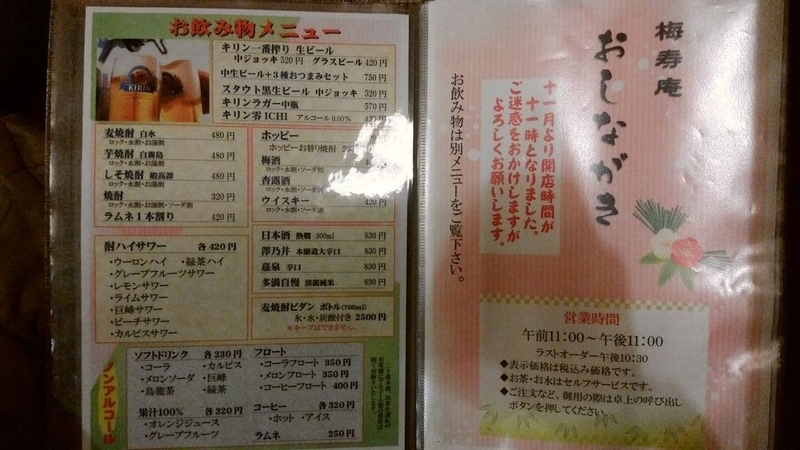 お飲み物メニュー
KIRIN
キリン一番搾り 生ビール
中ジョッキ520円 グラスビール420円
中生ビール+3種おつまみセット 750円
スタウト黒生ビール 中ジョッキ 520円
キリンラガー中瓶 570円
キリン零ICHI アルコール0.00% 420円
麦焼酎 白水 480円
ロック・水割・お湯割
芋焼酎 白霧島 480円
ロック・水割・お湯割
しそ焼酎 鍛高譚 480円
ロック・水割・お湯割
焼酎 320円
ロック・水割・お湯割・ソーダ割
ラムネ1本割り 420円
ホッピー
ホッピーお替り焼酎
梅酒
ロック・水割・ソーダ割
杏露酒
ロック・水割・お湯割・ソーダ割
ウイスキー 420円
ロック・水割・ソーダ割
酎ハイサワー 各420円
・ウーロンハイ ・緑茶ハイ
・グレープフルーツサワー
・レモンサワー
・ライムサワー
・巨峰サワー
・ピーチサワー
・カルピスサワー
日本酒 熱燗 300ml 830円
澤乃井 本醸造大辛口 830円
嘉泉 辛口 830円
多満自慢 淡麗純米 830円
麦焼酎ビダン ボトル(700ml)
氷・水・炭酸付き 2500円
＊キープはできません。
ノンアルコール
ソフトドリンク 各230円
・コーラ ・カルピス
・メロンソーダ ・巨峰
・烏龍茶 ・緑茶
果汁100% 各320円
・オレンジジュース
・グレープフルーツ
フロート
・コーラフロート 350円
・メロンフロート 350円
・コーヒーフロート 400円
コーヒー 各320円
・ホット ・アイス
ラムネ 250円
梅寿庵
おしながき
十一月より開店時間が
十一時となりました。
ご迷惑をおかけしますが
よろしくお願いします。
お飲み物は別メニューをご覧下さい。
営業時間
午前11:00～午後11:00
ラストオーダー午後10:30
◆表示価格は税込み価格です。
◆お茶・お水はセルフサービスです。
◆ご注文など、御用の際は卓上の呼び出し
ボタンを押してください。